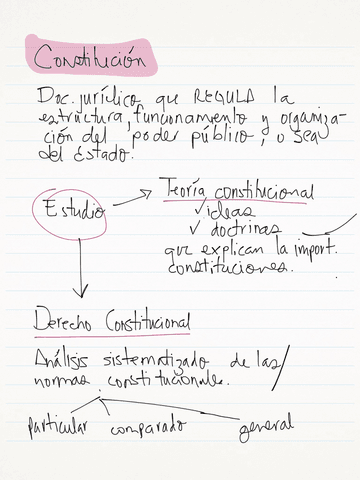 Constitución
Doc. jurídico que REGULA la
estructura, funcionamiento y organiza-
ción del poder público, o sea
del Estado.
Estudio
Teoría constitucional
✓ ideas
✓ doctrinas
que explican la import.
constituciones.
Derecho Constitucional
Análisis sistematizado de las
normas constitucionales.
particular comparado general